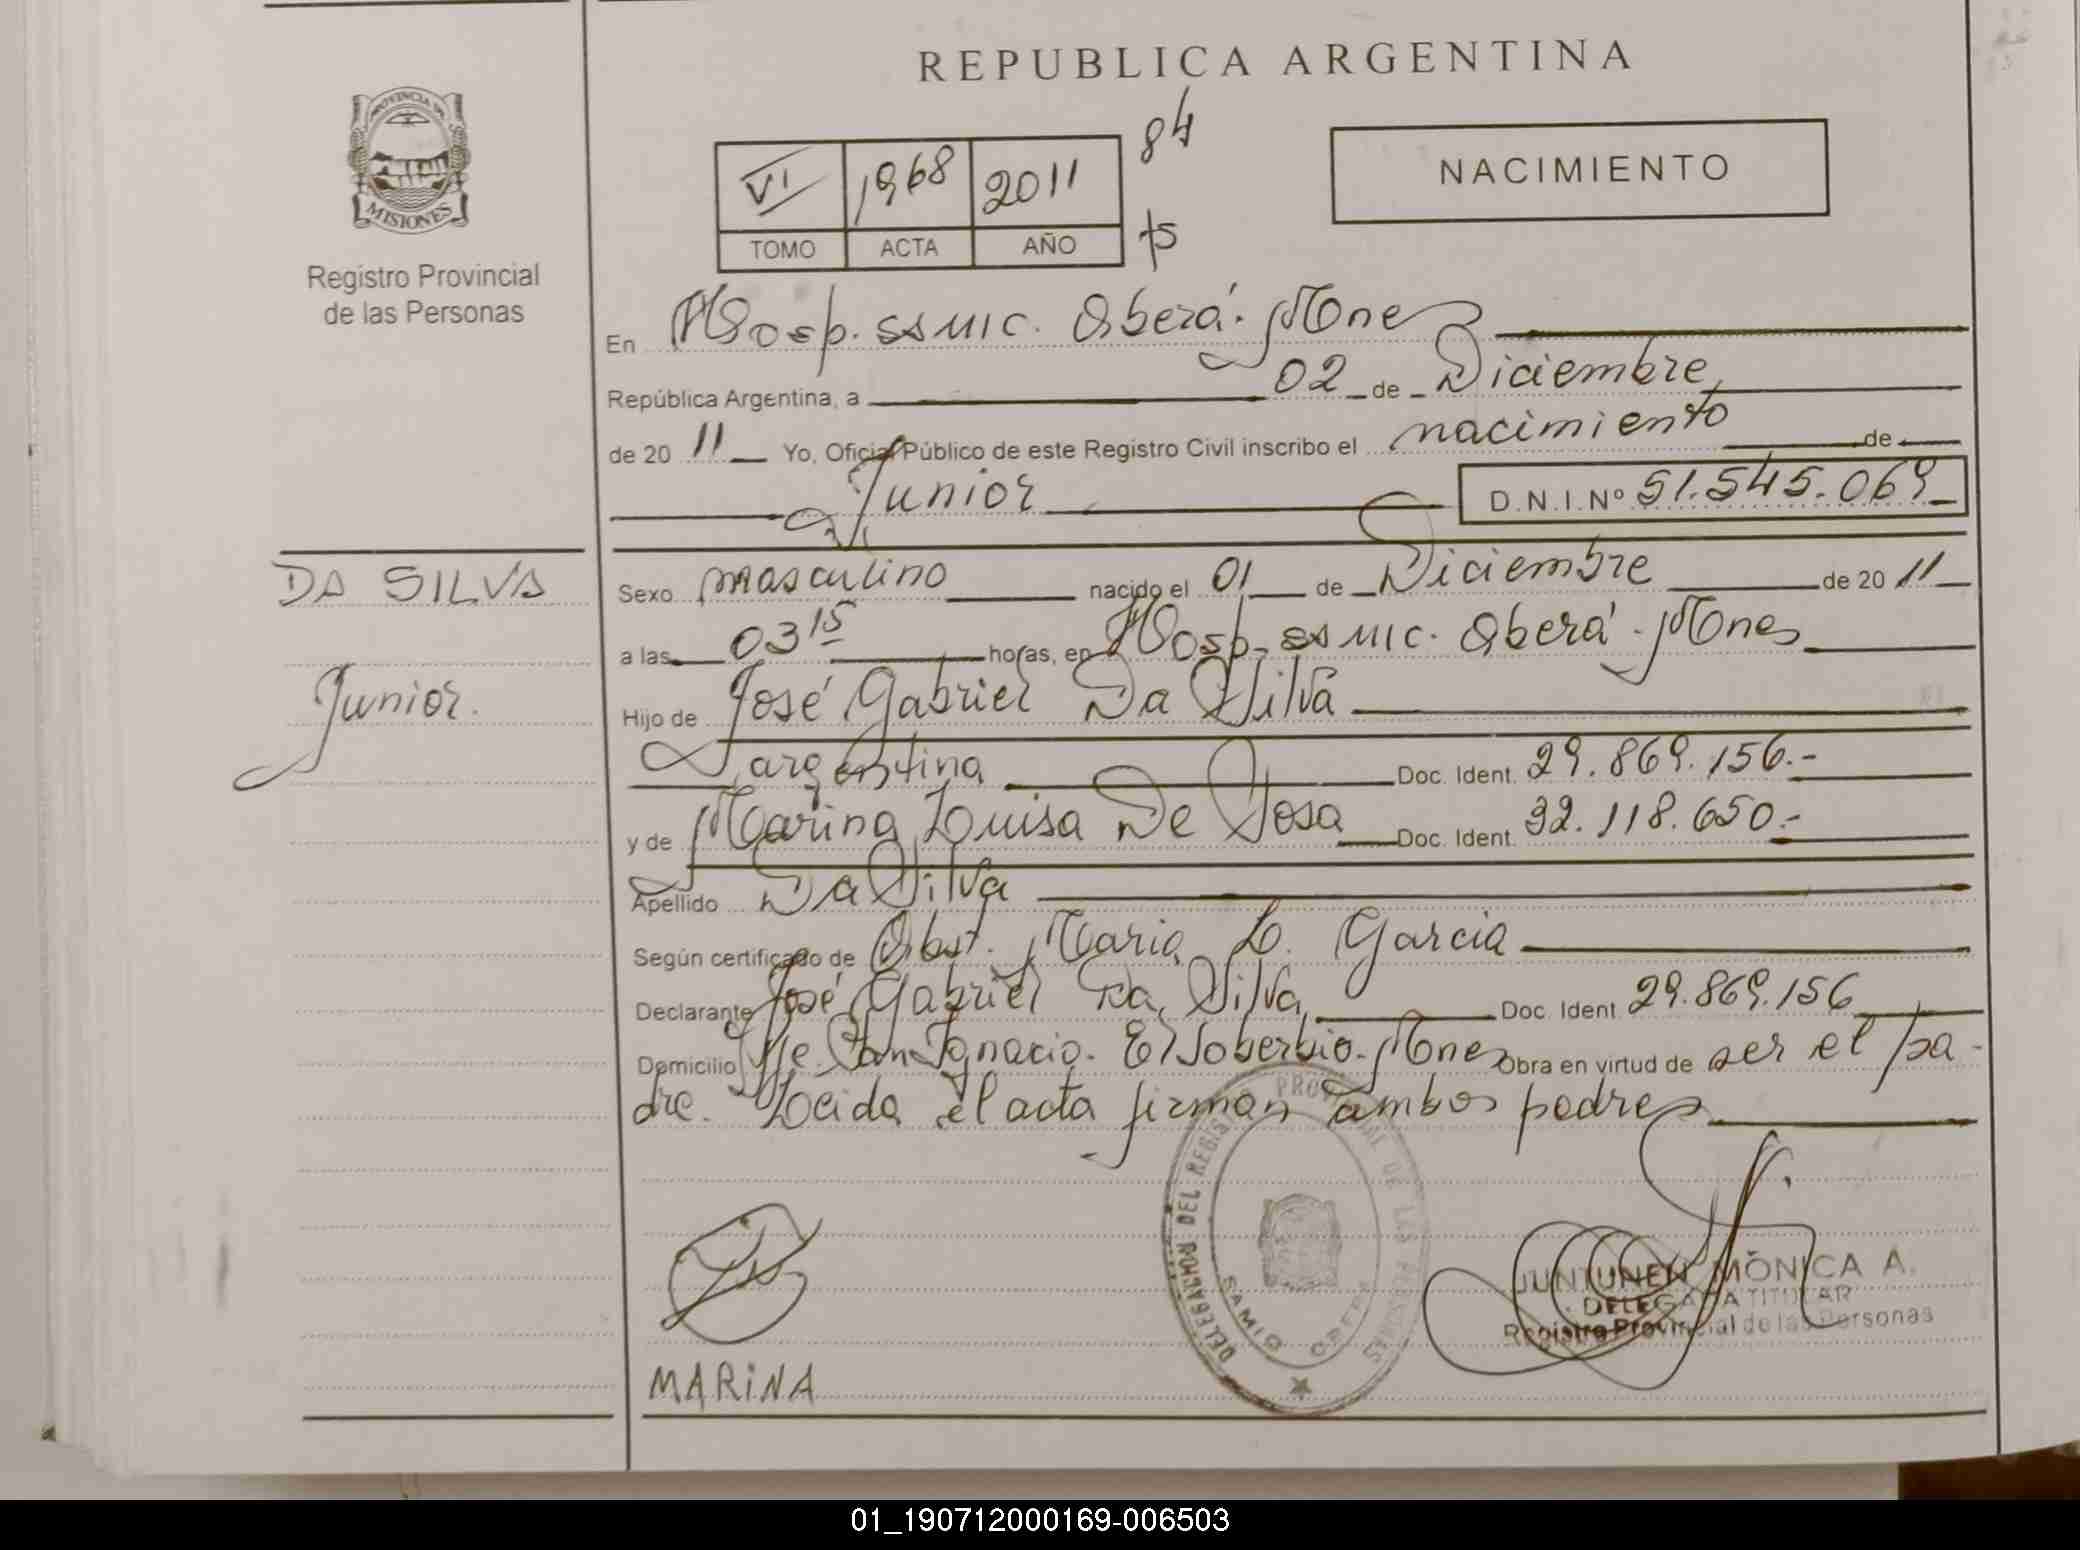 REPUBLICA ARGENTINA
PROVINCIA DE
MISIONES
Registro Provincial
de las Personas
VI 1968 2011
TOMO ACTA AÑO
84
NACIMIENTO
En Hosp. SSMIC. Oberá. Mnes
República Argentina, a 02 de Diciembre
de 20 11 Yo, Oficial Público de este Registro Civil inscribo el nacimiento de
Junior D.N.I.Nº 51.545.069
DA SILVA
Junior.
Sexo masculino nacido el 01 de Diciembre de 20 11
a las 03 15 horas, en Hosp. SSMIC. Oberá. Mnes
Hijo de José Gabriel Da Silva
argentina Doc. Ident. 29.869.156.-
y de Marina Luisa De Sosa Doc. Ident. 32.118.650.-
Apellido Da Silva
Según certificado de Obst. Maria L. Garcia
Declarante José Gabriel Da Silva Doc. Ident. 29.869.156
Domicilio San Ignacio. El Soberbio. Mnes Obra en virtud de ser el pa-
dre. Leida el acta firman ambos padres
DELEGACION DEL REGISTRO PROVINCIAL DE LAS PERSONAS
SAMIC OBERA
JUNTUNEN MÓNICA A.
DELEGADA TITULAR
Registro Provincial de las Personas
MARINA
01_190712000169-006503